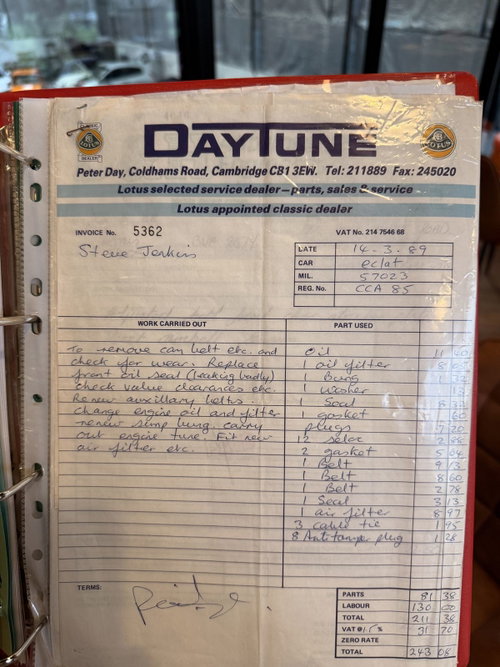 DAYTUNE
Peter Day, Coldhams Road, Cambridge CB1 3EW. Tel: 211889 Fax: 245020
Lotus selected service dealer – parts, sales & service
Lotus appointed classic dealer
INVOICE No. 5362
VAT No. 214 7546 68
Steve Jenkins
DATE 14.3.89
CAR eclat
MIL. 57023
REG. No. CCA 85
WORK CARRIED OUT
To remove cam belt etc. and
check for wear. Replace
front oil seal (leaking badly)
check value clearances etc.
Renew auxillary belts.
change engine oil and filter
renew sump bung. carry
out engine tune. Fit new
air filter etc.
PART USED
oil 11
1 oil filter 8
1 Bung 1
1 Washer
1 Seal 8
1 gasket 60
plugs 7 20
12 2 88
2 gasket 5
1 Belt 9 13
1 Belt 8 60
1 Belt 2 78
1 Seal 3 13
1 air filter 8 97
3 cable tie 1 95
8 Antitamper plug 1 28
TERMS:
PARTS 81 38
LABOUR 130 00
TOTAL 211 38
VAT @ 15 % 31 70
ZERO RATE
TOTAL 243 08